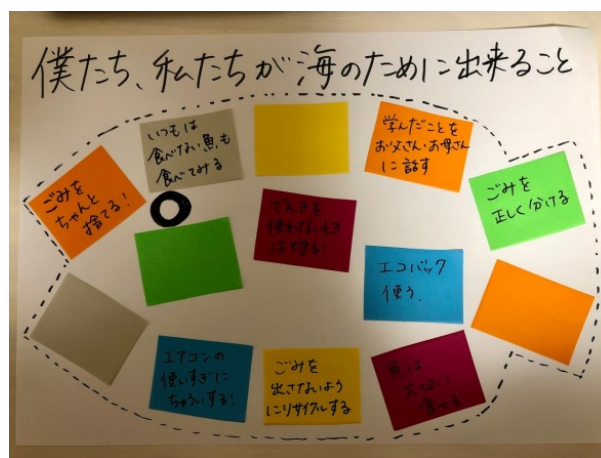 僕たち、私たちが海のために出来ること
いつもは
食べない魚も
食べてみる
学んだことを
お父さん・お母さん
に話す
ごみを
ちゃんと
捨てる!
ごみを
正しく分ける
でんきを
使わないとき
は切る!
エコバック
使う.
エアコンの
使いすぎに
ちゅういする!
ごみを
出さないよう
にリサイクルする
魚は
大切に
食べる